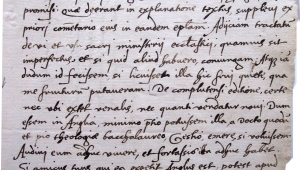 promisi. Quæ deerant in explanatione textus, supplevi ex
priori cōmētario eius in eandem eplam. Adiiciam tractatū
de vi et usu sacri ministerii ecclesiæ, quamvis sit
imperfectus, et si quid aliud habuero, convengam. Atqz id
dudum id fecissem, si licuisset illa hic frui quiete, qua
me fruiturū putaveram. De complutensi editione, certe
nec ubi extet venalis, nec quanti vendatur novi. Dum
essem in Anglia, minimo pho potuissem illa a docto quodā
et pio theologiæ bacchalaureo, emere, si voluissem.
Audivi eum adhuc vivere, et fortassis eū adhuc habet
Si amicus tuus qui eo Anglus est, potest apud